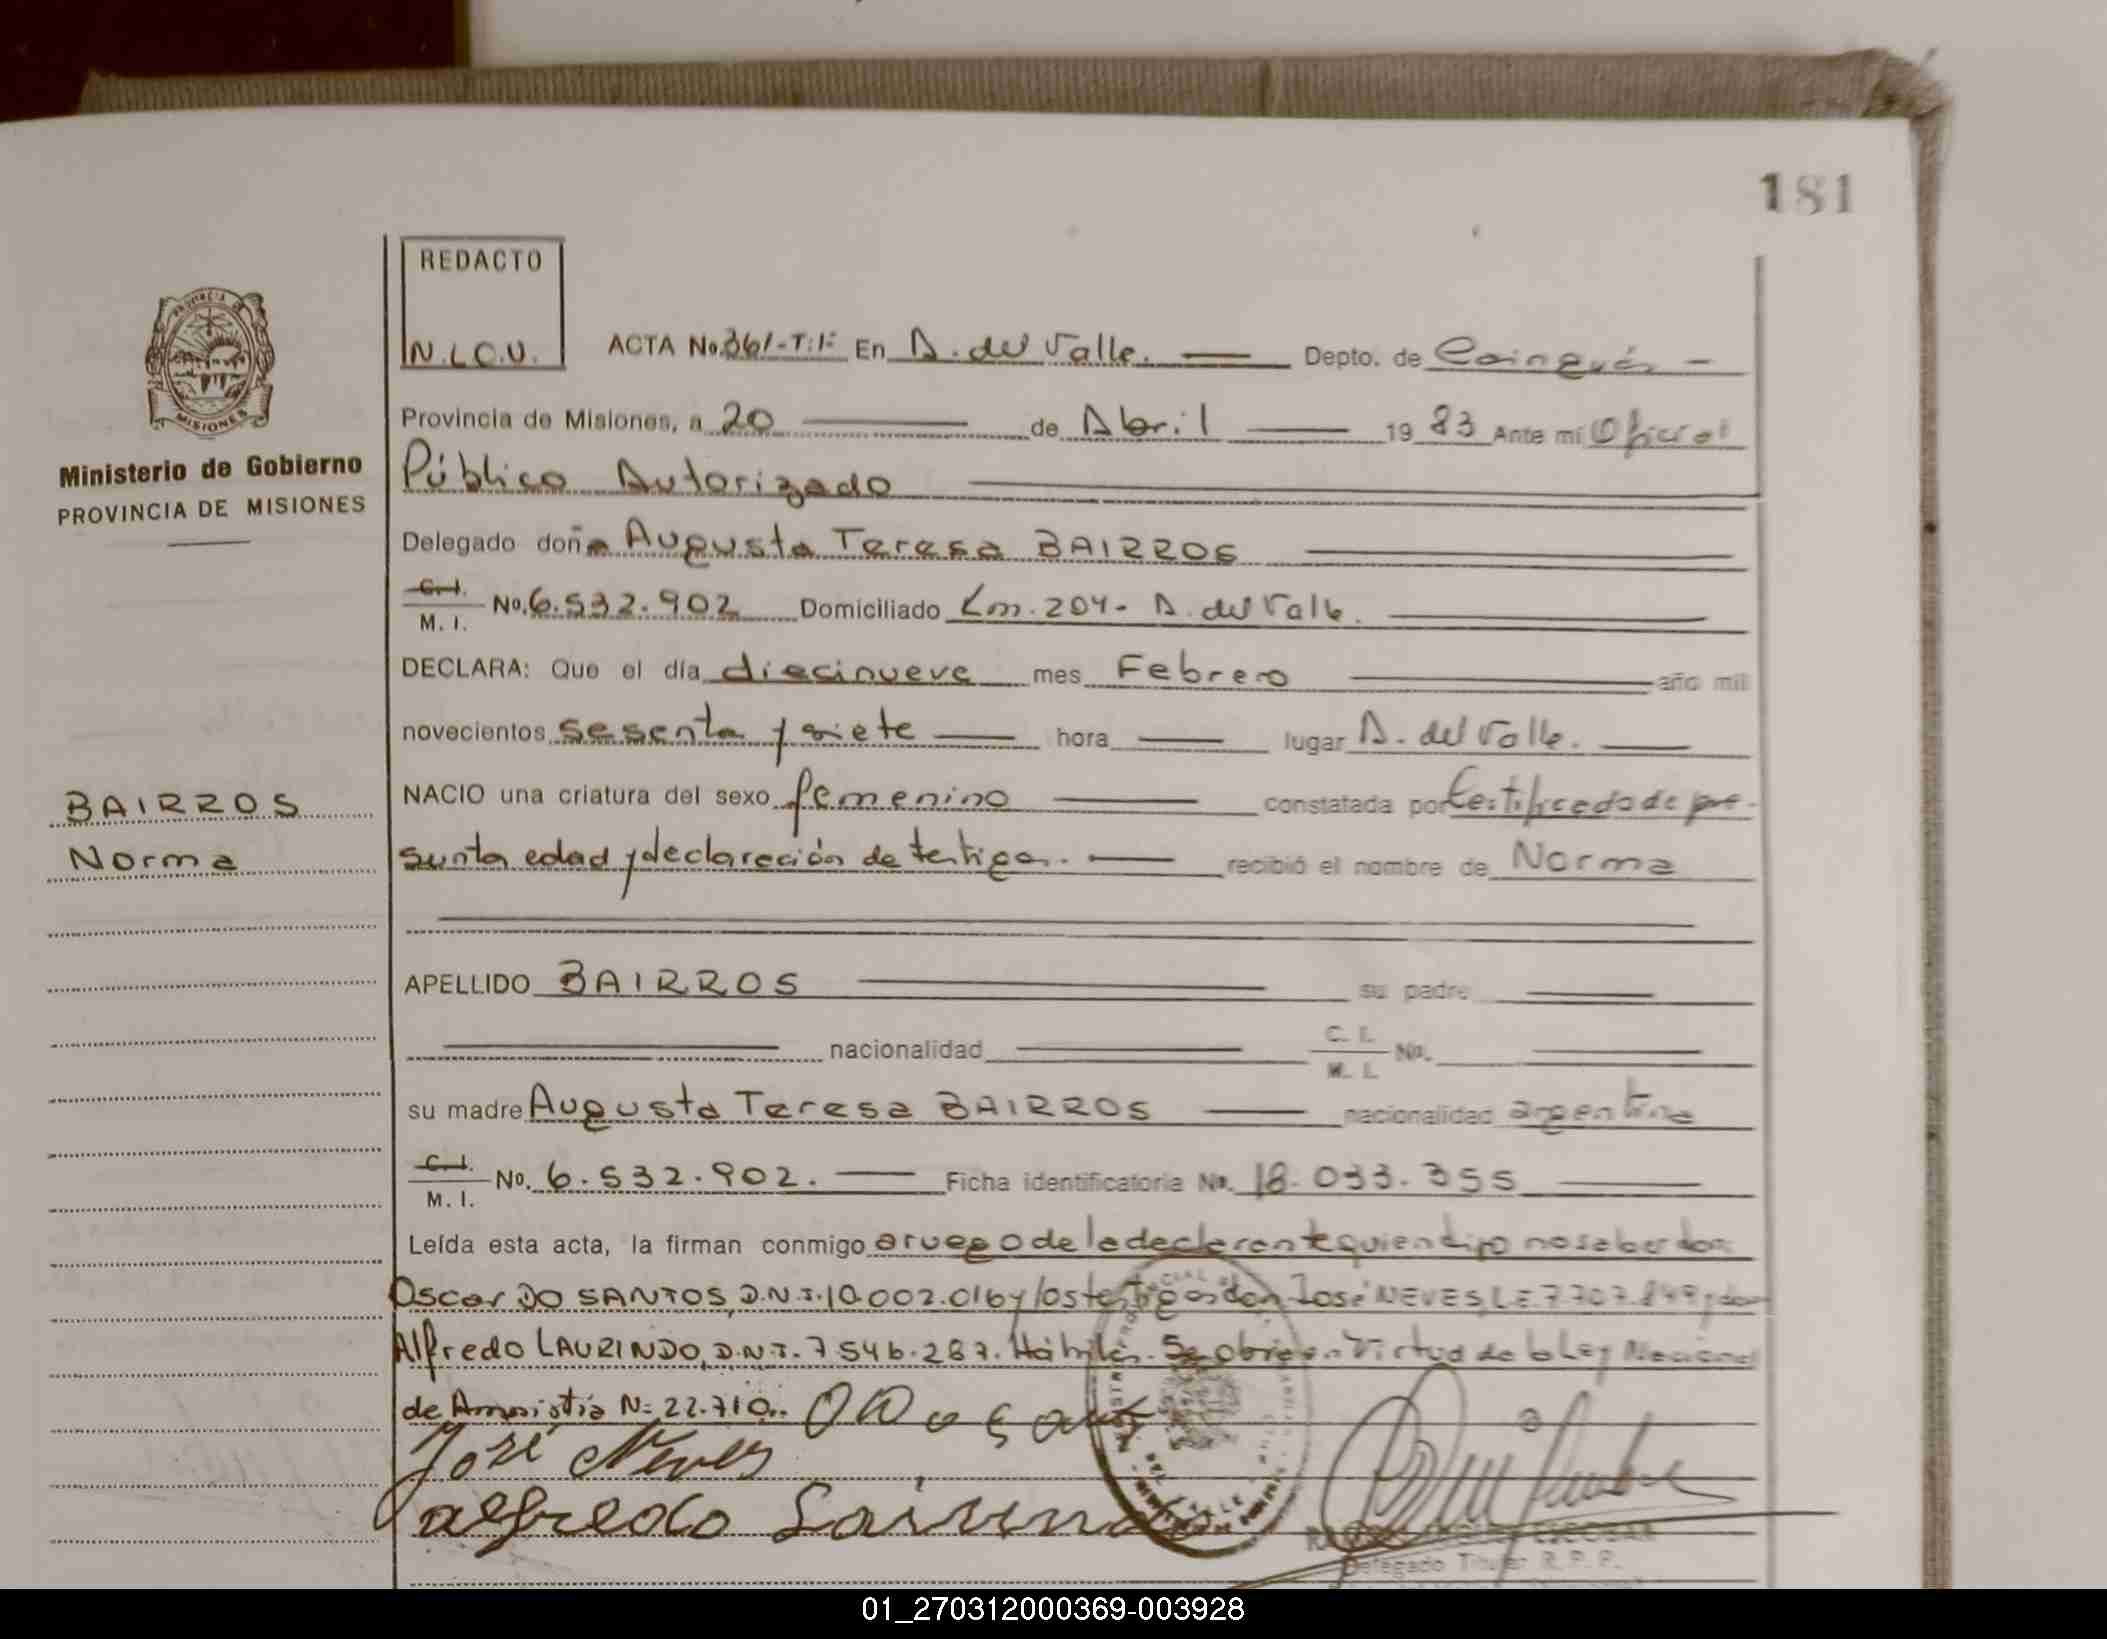 181
REDACTO
N.L.C.U.
ACTA No. 361-T:1º En A. del Valle. Depto. de Cainguás -
Provincia de Misiones, a 20 de Abril 19 83 Ante mí Oficial
Público Autorizado
Ministerio de Gobierno
PROVINCIA DE MISIONES
Delegado doña Augusta Teresa BAIRROS
C.I. M. I. No. 6.532.902 Domiciliado Km. 204- A. del Valle.
DECLARA: Que el día diecinueve mes Febrero año mil
novecientos sesenta y siete hora lugar A. del Valle.
NACIO una criatura del sexo femenino constatada por Certificado de pre-
BAIRROS
Norma
sunta edad y declaración de testigos. recibió el nombre de Norma
APELLIDO BAIRROS su padre
nacionalidad C. I. M. I. No.
su madre Augusta Teresa BAIRROS nacionalidad argentina
C.I. M. I. No. 6.532.902. Ficha identificatoria No. 18.033.355
Leída esta acta, la firman conmigo a ruego de la declarante quien dijo no saber don
Oscar DO SANTOS, D.N.I. 10.002.016 y los testigos don José NEVES, L.E. 7.707.849 y don
Alfredo LAURINDO, D.N.I. 7.546.287. Hábiles. Se obra en Virtud de la Ley Nacional
de Amnistía Nº 22.710.
José Neves
alfredo
ESCOBAR
Delegado Titular R. P. P.
01_270312000369-003928